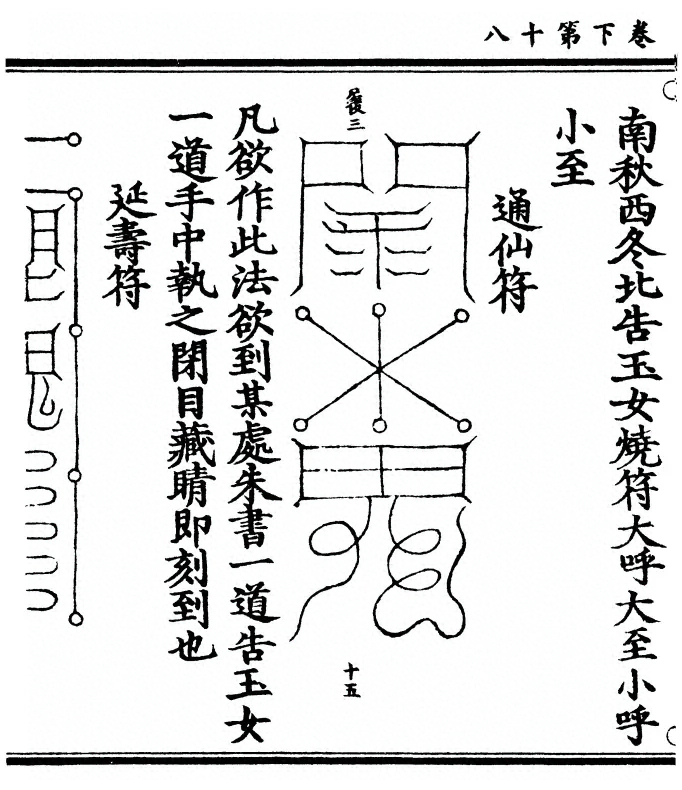 卷下第十八
南秋西冬北告玉女燒符大呼大至小呼
小至
通仙符
三
十五
凡欲作此法欲到某處朱書一道告玉女
一道手中執之閉目藏睛即刻到也
延壽符